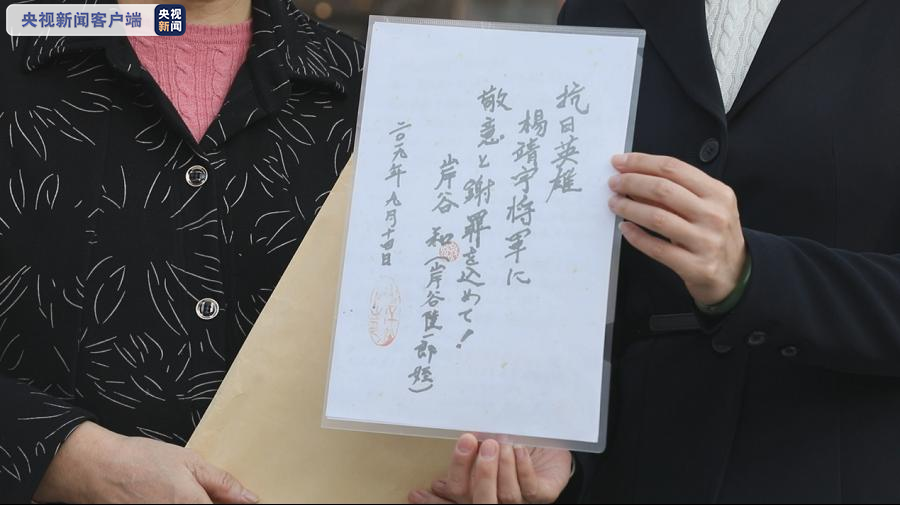 央视新闻客户端
央视
新闻
抗日英雄
楊靖宇将軍に
敬意と謝罪を込めて！
岸谷 和(岸谷隆一郎 姪)
二〇一九年九月十四日